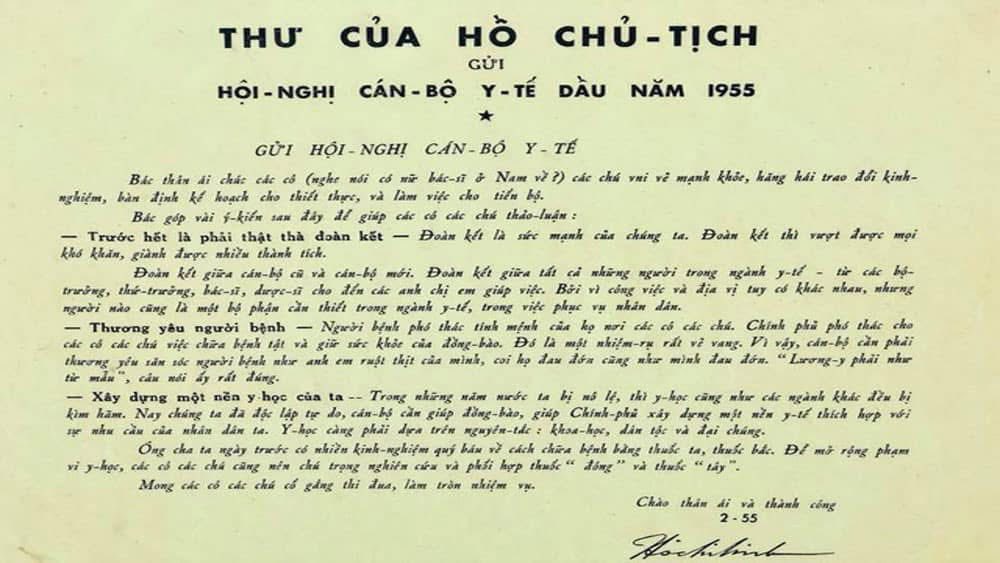 THƯ CỦA HỒ CHỦ-TỊCH
GỬI
HỘI-NGHỊ CÁN-BỘ Y-TẾ DẦU NĂM 1955
★
GỬI HỘI-NGHỊ CÁN-BỘ Y-TẾ
Bác thân ái chúc các cô (nghe nói có nữ bác-sĩ ở Nam về?) các chú vui vẻ mạnh khỏe, hăng hái trao đổi kinh-
nghiệm, bàn định kế hoạch cho thiết thực, và làm việc cho tiến bộ.
Bác góp vài ý-kiến sau đây để giúp các cô các chú thảo-luận :
— Trước hết là phải thật thà đoàn kết — Đoàn kết là sức mạnh của chúng ta. Đoàn kết thì vượt được mọi
khó khăn, giành được nhiều thành tích.
Đoàn kết giữa cán-bộ cũ và cán-bộ mới. Đoàn kết giữa tất cả những người trong ngành y-tế - từ các bộ-
trưởng, thứ-trưởng, bác-sĩ, dược-sĩ cho đến các anh chị em giúp việc. Bởi vì công việc và địa vị tuy có khác nhau, nhưng
người nào cũng là một bộ phận cần thiết trong ngành y-tế, trong việc phục vụ nhân dân.
— Thương yêu người bệnh — Người bệnh phó thác tính mệnh của họ nơi các cô các chú. Chính phủ phó thác cho
các cô các chú việc chữa bệnh tật và giữ sức khỏe của đồng-bào. Đó là một nhiệm-vụ rất vẻ vang. Vì vậy, cán-bộ cần phải
thương yêu săn sóc người bệnh như anh em ruột thịt của mình, coi họ đau đớn cũng như mình đau đớn. “ Lương-y phải như
từ mẫu”, câu nói ấy rất đúng.
— Xây dựng một nền y-học của ta -- Trong những năm nước ta bị nô lệ, thì y-học cũng như các ngành khác đều bị
kìm hãm. Nay chúng ta đã độc lập tự do, cán-bộ cần giúp đồng-bào, giúp Chính-phủ xây dựng một nền y-tế thích hợp với
sự nhu cầu của nhân dân ta. Y-học càng phải dựa trên nguyên-tắc : khoa-học, dân tộc và đại chúng.
Ông cha ta ngày trước có nhiều kinh-nghiệm quý báu về cách chữa bệnh bằng thuốc ta, thuốc bắc. Để mở rộng phạm
vi y-học, các cô các chú cũng nên chú trọng nghiên cứu và phối hợp thuốc “ đông” và thuốc “tây”.
Mong các cô các chú cố gắng thi đua, làm tròn nhiệm vụ.
Chào thân ái và thành công
2 - 55
Hochiminh